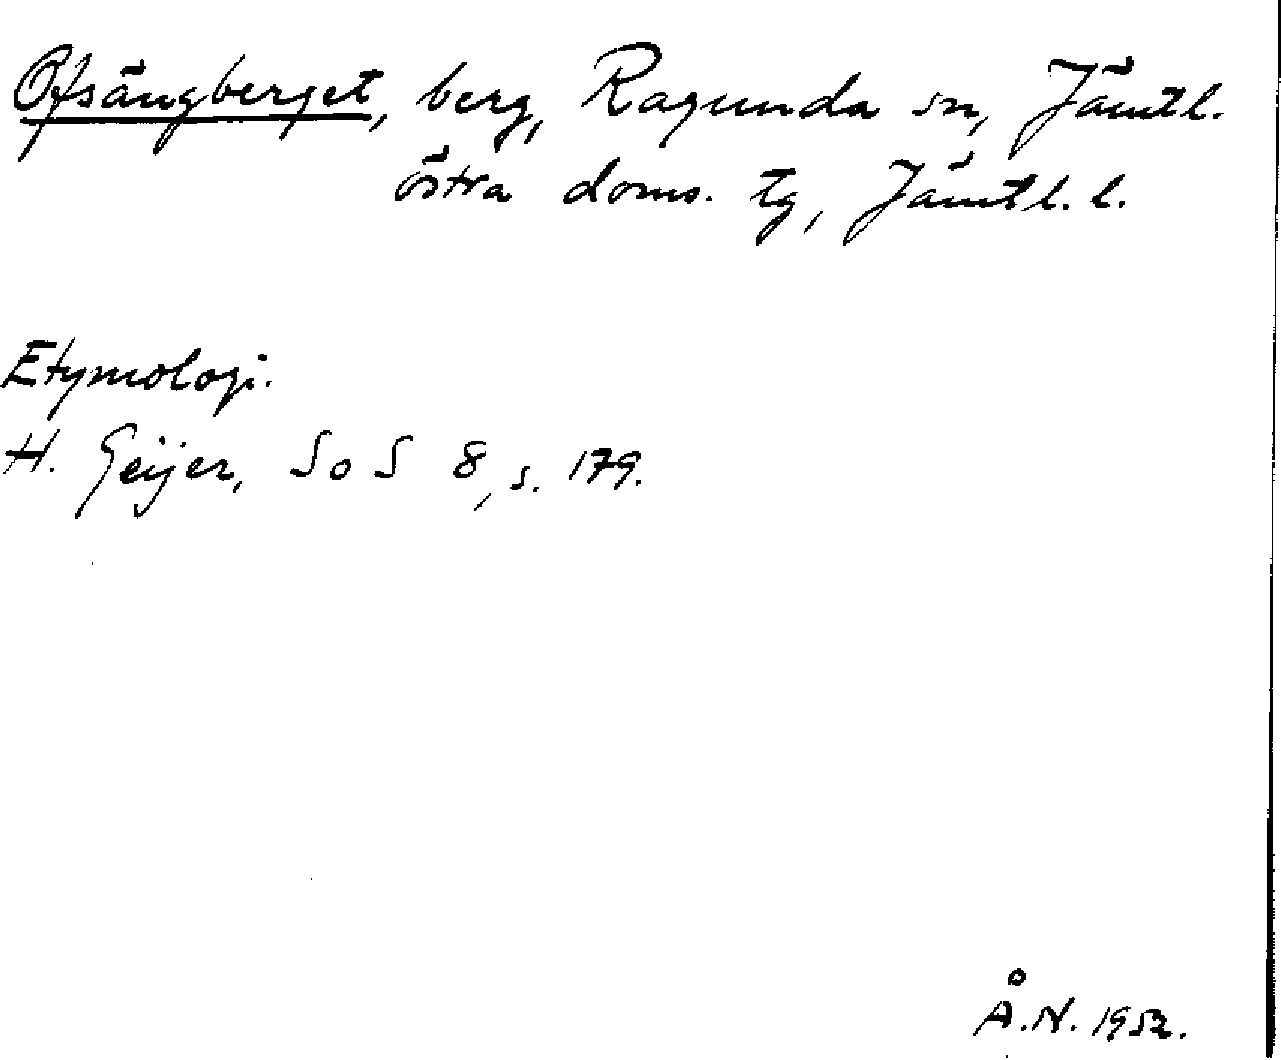 Ofsängberget, berg, Ragunda sn, Jämtl.
östra doms. tg, Jämtl. l.
Etymologi.
H. Geijer, SoS 8, s. 179.
Å.N. 1952.